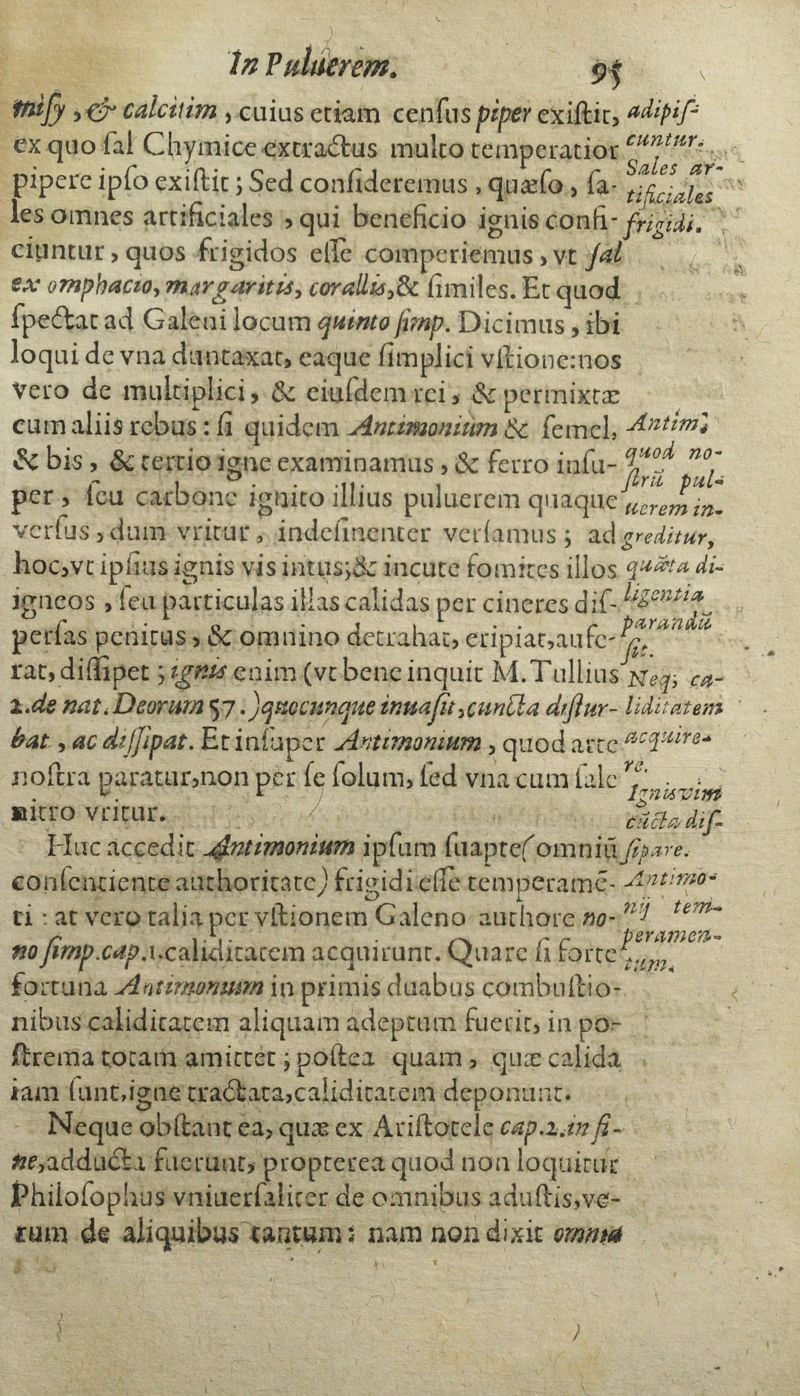 In Puluerem. 95
misy, & calcitim, cuius etiam census piper existit,
ex quo sal Chymice extractus multo temperatior
pipere ipso existit; Sed consideremus, quæso, sa-
les omnes artificiales, qui beneficio ignis confi-
ciuntur, quos frigidos esse comperiemus, vt sal
ex omphacio, margaritis, corallis, & similes. Et quod
spectat ad Galeni locum quinto simp. Dicimus, ibi
loqui de vna duntaxat, eaque simplici vstione: nos
vero de multiplici, & eiusdem rei, & permixtæ
cum aliis rebus: si quidem Antimonium & semel,
& bis, & tertio igne examinamus, & ferro insu-
per, seu carbone ignito illius puluerem quaque
versus, dum vritur, indesinenter versamus; ad
hoc, vt ipsius ignis vis intus, & incute fomites illos
igneos, seu particulas illas calidas per cineres dis-
persas penitus, & omnino detrahat, eripiat, aufe-
rat, dissipet; ignis enim (vt bene inquit M. Tullius
2. de nat. Deorum 57.) quocunque inuasit, cuncta distur-
bat, ac dissipat. Et insuper Antimonium, quod arte
nostra paratur, non per se solum, sed vna cum sale
nitro vritur.
Huc accedit Antimonium ipsum suapte (omniū
consentiente authoritate) frigidi esse temperamē-
ti: at vero talia per vstionem Galeno authore no-
no simp. cap. 1. caliditatem acquirunt. Quare si forte
fortuna Antimonium in primis duabus combustio-
nibus caliditatem aliquam adeptum fuerit, in po-
strema totam amittet; postea quam, quæ calida
iam sunt, igne tractata, caliditatem deponunt.
Neque obstant ea, quæ ex Aristotele cap. 2. in fi-
ne, adducta fuerunt, propterea quod non loquitur
Philosophus vniuersaliter de omnibus adustis, ve-
rum de aliquibus tantum: nam non dixit omnia
adipis-
cuntur.
Sales ar-
tificiales
frigidi.
Antim.
quod no-
strū pul-
uerem in-
greditur,
quāta di-
ligentia
parandū
sit.
Neq; ca-
liditatem
acquire-
re.
Ignis vim
cūcta dis-
sipare.
Antimo-
nij tem-
peramen-
tum.